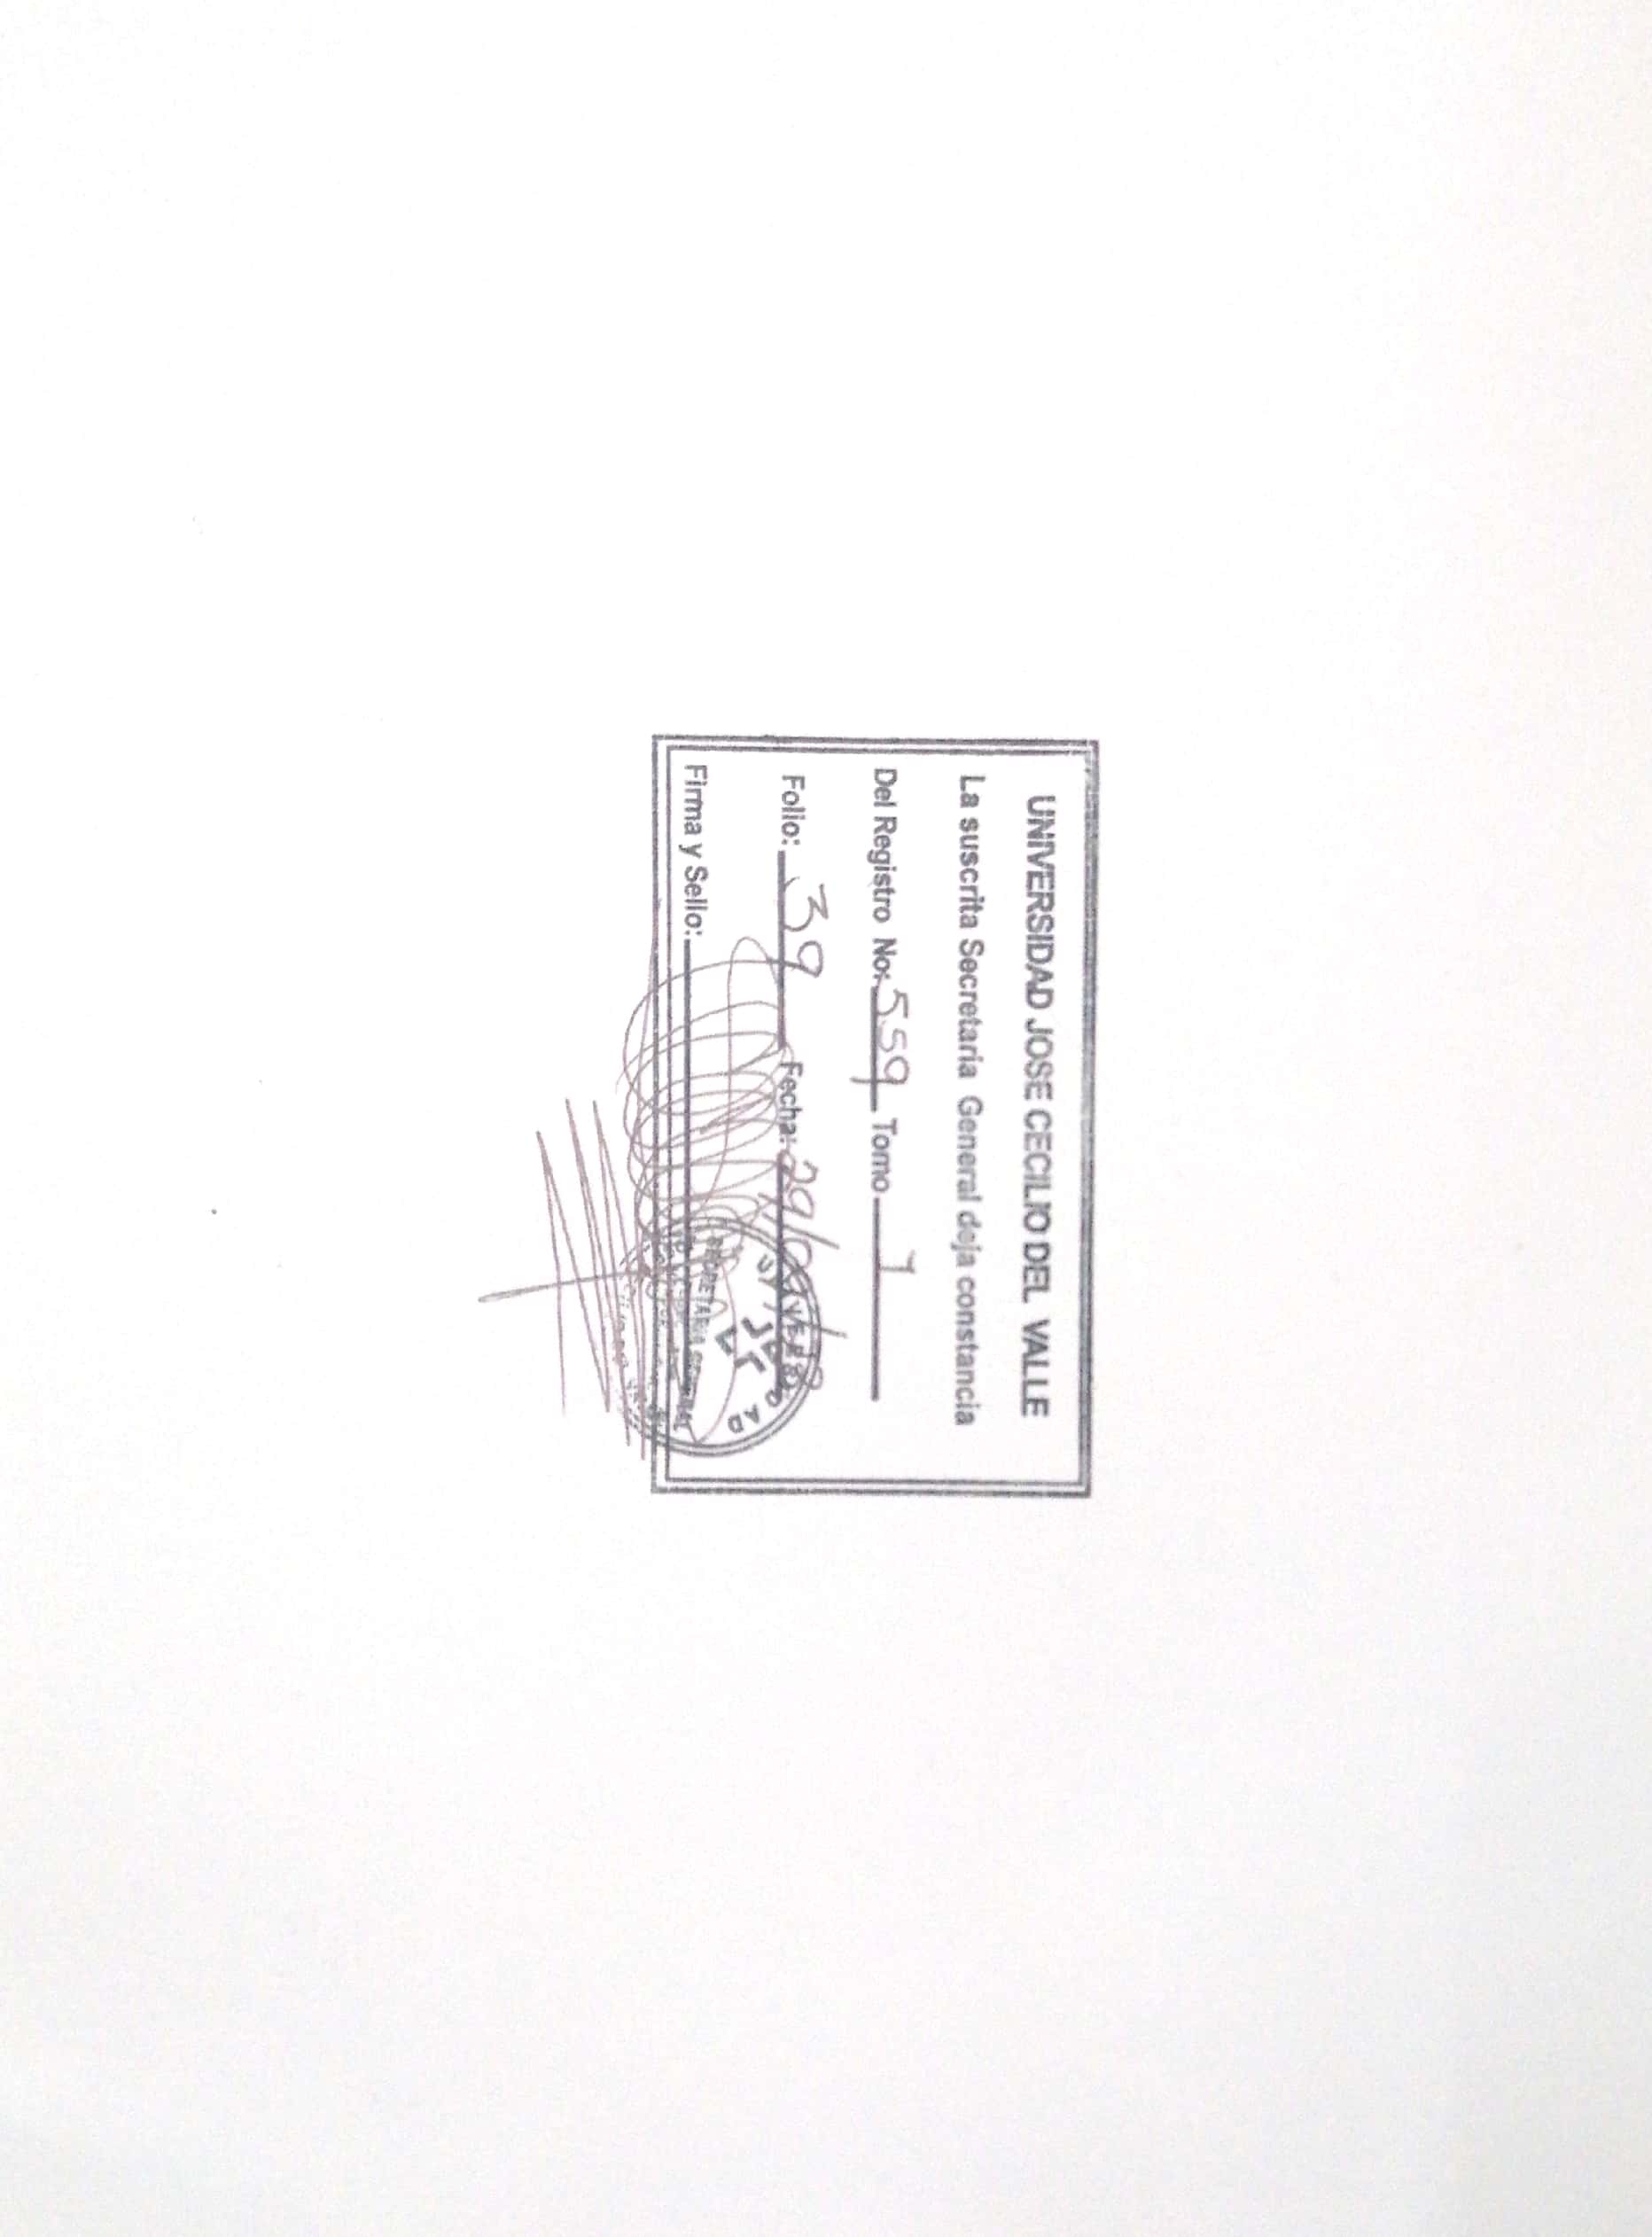 UNIVERSIDAD JOSE CECILIO DEL VALLE
La suscrita Secretaria General deja constancia
Del Registro No: 559 Tomo 1
Folio: 39 Fecha: 29/
Firma y Sello:
UNIVERSIDAD
SECRETARIA GENERAL